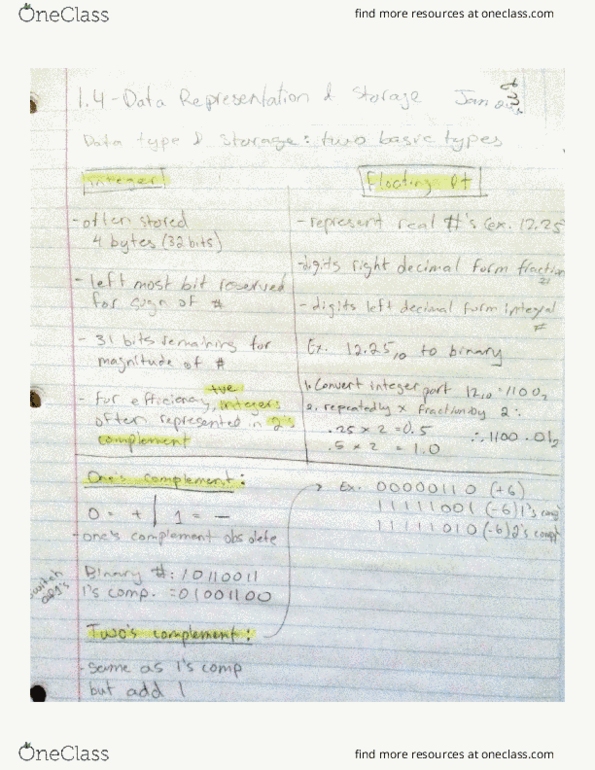 OneClass
find more resources at oneclass.com
1.4 - Data Representation & Storage Jan
Data type & Storage: two basic types
Integer
- often stored
4 bytes (32 bits)
- left most bit reserved
for sign of #
- 31 bits remaining for
magnitude of #
- for efficiency, +ve integers
often represented in 2's
complement
Floating Pt
- represent real #'s (ex. 12.25
- digits right decimal form fraction
#
- digits left decimal form integral
#
Ex. 12.25₁₀ to binary
1. Convert integer part 12₁₀ = 1100₂
2. repeatedly x fraction by 2:
.25 x 2 = 0.5 ∴ 1100.01₂
.5 x 2 = 1.0
One's complement:
0 = + | 1 = -
- one's complement obsolete
Binary #: 10110011
1's comp. = 01001100
switch
Two's complement:
- same as 1's comp
but add 1
Ex. 00000110 (+6)
11111001 (-6) 1's comp
11111010 (-6) 2's compt
OneClass
find more resources at oneclass.com